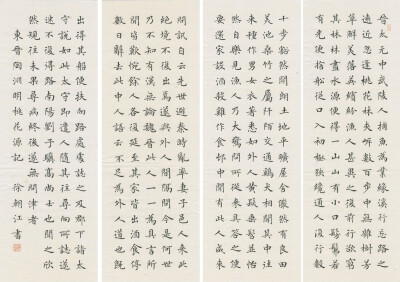 晉太元中武陵人捕魚為業緣溪行忘路之
遠近忽逢桃花林夾岸數百步中無雜樹芳
草鮮美落英繽紛漁人甚異之復前行欲窮
其林林盡水源便得一山山有小口髣髴若
有光便捨船從口入初極狹纔通人復行數
十步豁然開朗土地平曠屋舍儼然有良田
美池桑竹之屬阡陌交通雞犬相聞其中往
來種作男女衣著悉如外人黃髮垂髫並怡
然自樂見漁人乃大驚問所從來具答之便
要還家設酒殺雞作食村中聞有此人咸來
問訊自云先世避秦時亂率妻子邑人來此
絕境不復出焉遂與外人間隔問今是何世
乃不知有漢無論魏晉此人一一為具言所
聞皆歎惋餘人各復延至其家皆出酒食停
數日辭去此中人語云不足為外人道也既
出得其船便扶向路處處誌之及郡下詣太
守說如此太守即遣人隨其往尋向所誌遂
迷不復得路南陽劉子驥高尚士也聞之欣
然規往未果尋病終後遂無問津者
東晉陶淵明桃花源記 徐朝江書